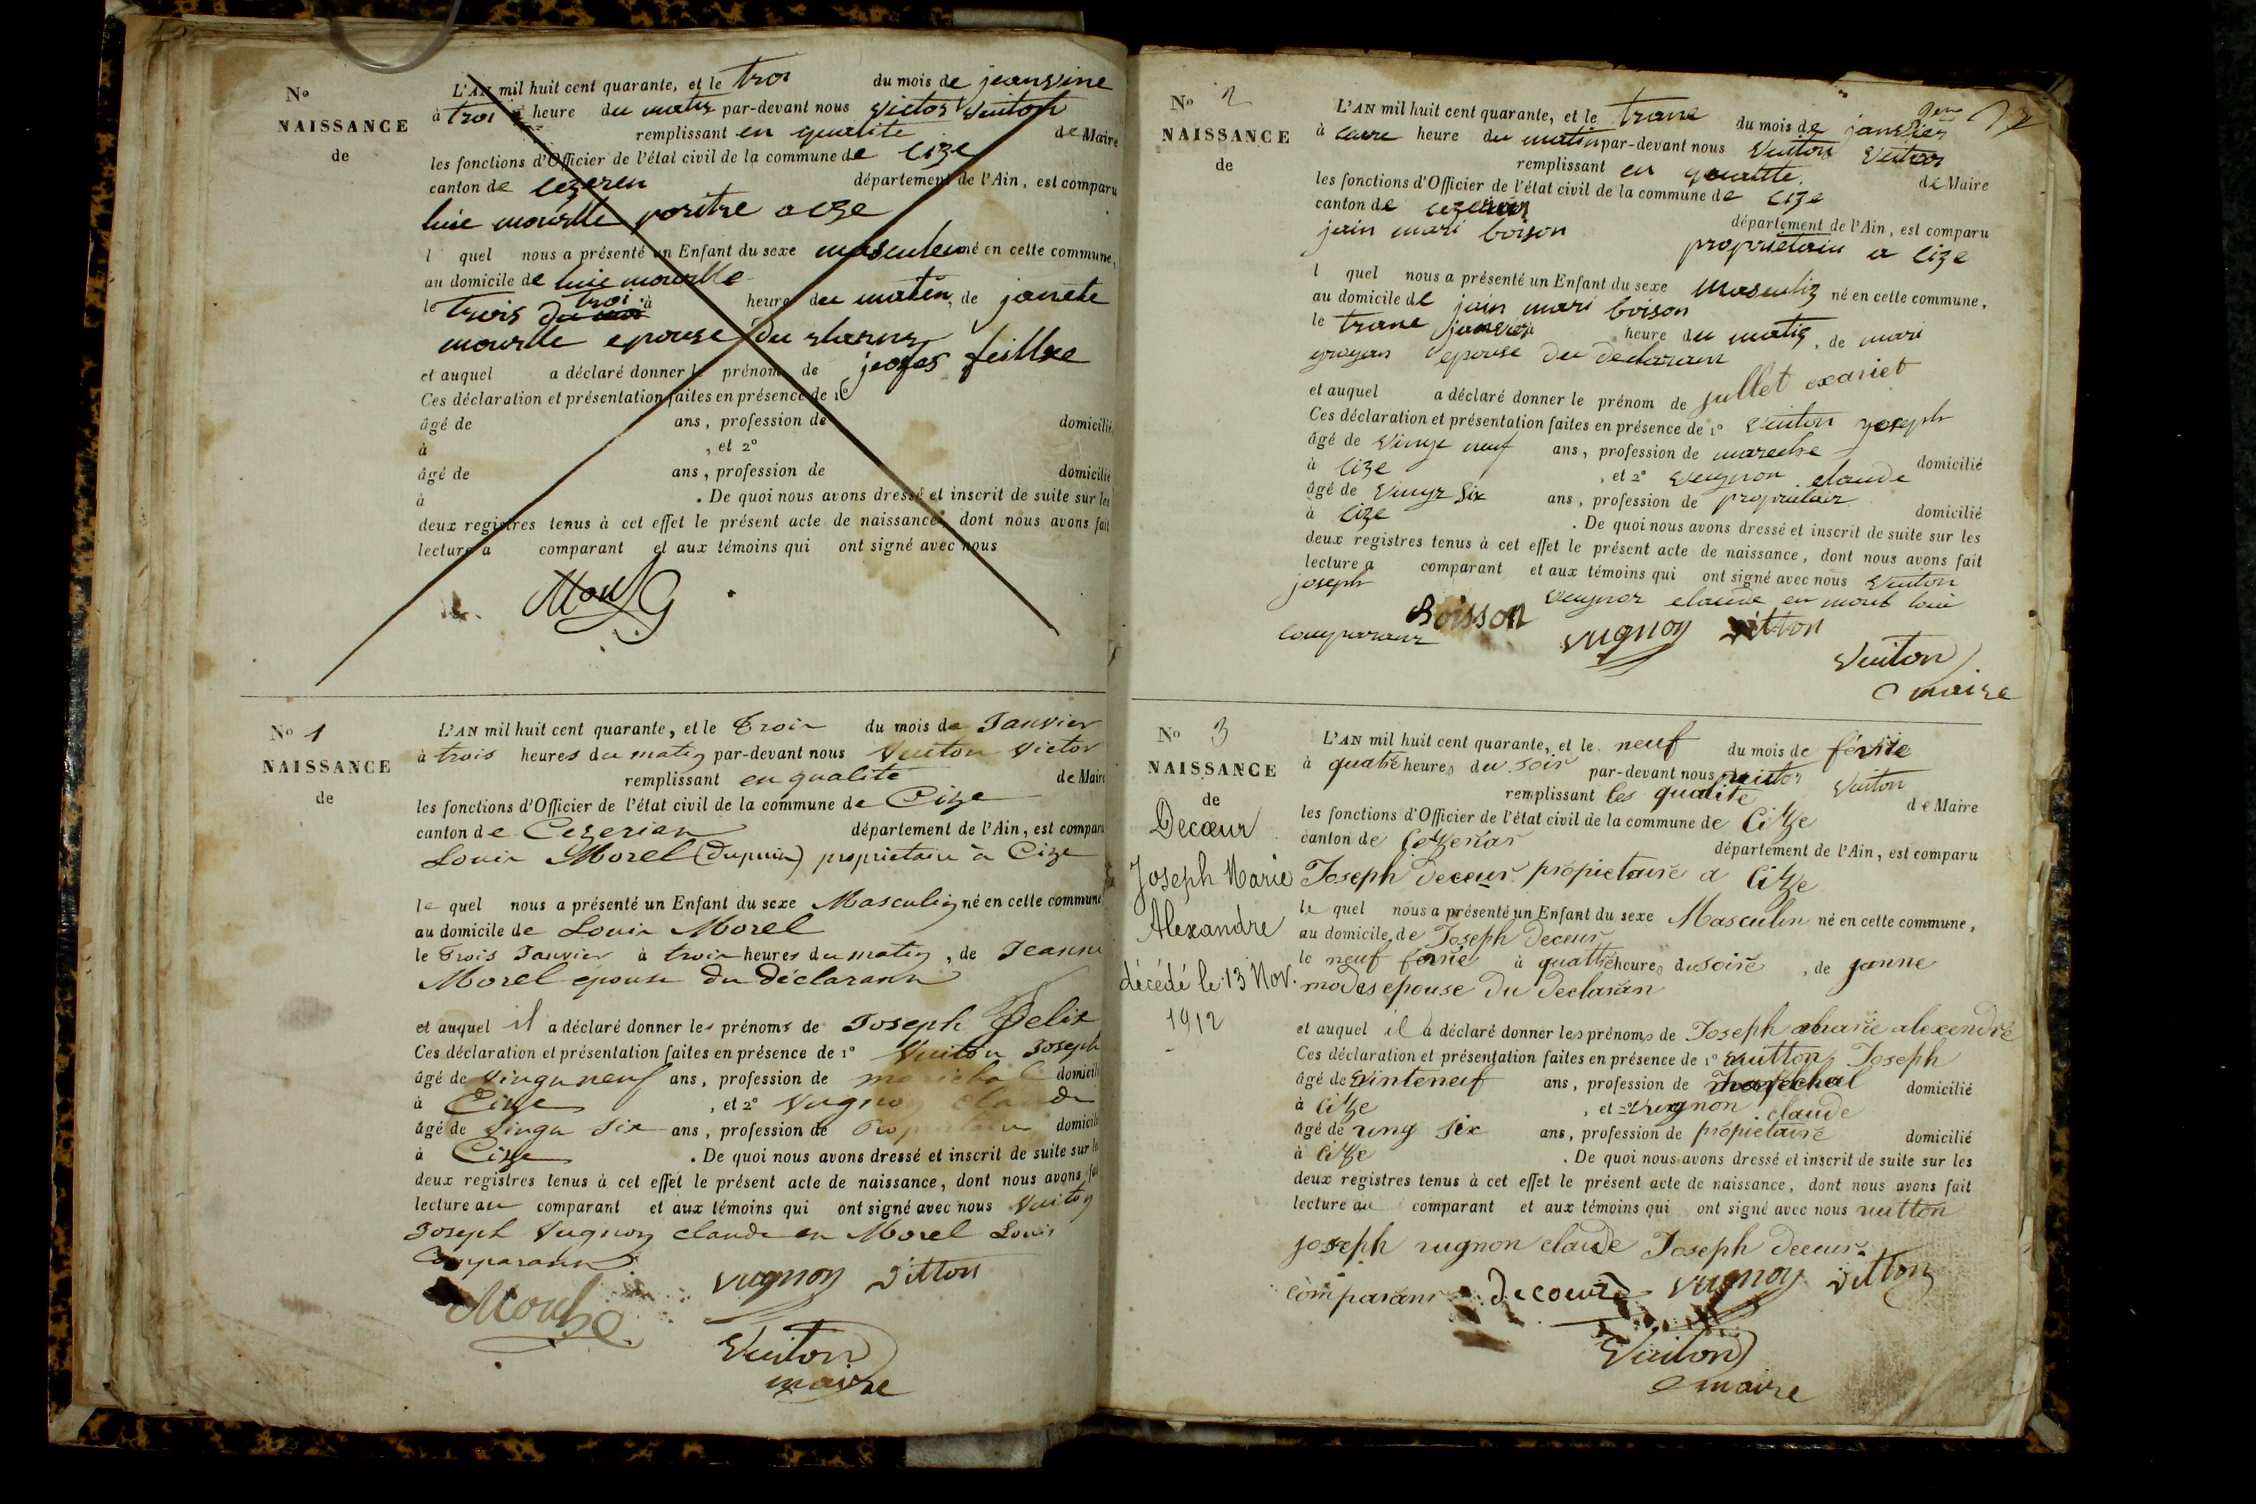 No
NAISSANCE
de
L'AN mil huit cent quarante, et le troi du mois de jeanvine
à troi heure du matin par-devant nous victor Vuiton
remplissant en qualite de Maire
les fonctions d'Officier de l'état civil de la commune de Cize
canton de cezeren département de l'Ain, est comparu
luie mourlle a cize
l quel nous a présenté un Enfant du sexe masculin né en cette commune,
au domicile de luie mourlle
le trois troi à heure du matin, de janete
mourlle epouse du
et auquel a déclaré donner le prénom de jeosfes feillxe
Ces déclaration et présentation faites en présence de 1º
âgé de ans, profession de domicilié
à , et 2º
âgé de ans, profession de domicilié
à . De quoi nous avons dressé et inscrit de suite sur les
deux registres tenus à cet effet le présent acte de naissance, dont nous avons fait
lecture a comparant et aux témoins qui ont signé avec nous
No 1
NAISSANCE
de
L'AN mil huit cent quarante, et le Trois du mois de Janvier
à trois heures du matin par-devant nous Vuiton Victor
remplissant en qualité de Maire
les fonctions d'Officier de l'état civil de la commune de Cize
canton de Cezerian département de l'Ain, est comparu
Louis Morel (Dupuis) proprietaire à Cize
le quel nous a présenté un Enfant du sexe Masculin né en cette commune
au domicile de Louis Morel
le Trois Janvier à trois heures du matin, de Jeanne
Morel épouse du déclarant
et auquel il a déclaré donner les prénoms de Joseph Felix
Ces déclaration et présentation faites en présence de 1º Vuiton Joseph
âgé de Vingt neuf ans, profession de marichal domicilié
à Cize , et 2º Vugnon claude
âgé de Vingt Six ans, profession de Proprietaire domicilié
à Cize . De quoi nous avons dressé et inscrit de suite sur les
deux registres tenus à cet effet le présent acte de naissance, dont nous avons fait
lecture au comparant et aux témoins qui ont signé avec nous Vuiton
Joseph Vugnon claude en Morel Louis
Comparant
vugnon vitton
Vuiton
maire
No 2
NAISSANCE
de
L'AN mil huit cent quarante, et le trane du mois de janvier
à heure du matin par-devant nous Vuiton
remplissant en qualite de Maire
les fonctions d'Officier de l'état civil de la commune de Cize
canton de département de l'Ain, est comparu
jain mari boison proprietain a Cize
l quel nous a présenté un Enfant du sexe masculin né en cette commune,
au domicile de jain mari boison
le trane janvier heure du matin, de mari
epouse du declarant
et auquel a déclaré donner le prénom de jullet exariet
Ces déclaration et présentation faites en présence de 1º Vuiton joseph
âgé de Vingt neuf ans, profession de mareche domicilié
à Cize , et 2º Vugnon claude
âgé de Vingt Six ans, profession de propriétair domicilié
à Cize . De quoi nous avons dressé et inscrit de suite sur les
deux registres tenus à cet effet le présent acte de naissance, dont nous avons fait
lecture a comparant et aux témoins qui ont signé avec nous Vuiton
joseph Vugnon claude en
comparant Boisson vugnon vitton
Vuiton
maire
No 3
NAISSANCE
de
Decœur
Joseph Marie
Alexandre
décédé le 13 Nov.
1912
L'AN mil huit cent quarante, et le neuf du mois de fevrie
à quatre heures du soir par-devant nous victor Vuiton
remplissant les qualite de Maire
les fonctions d'Officier de l'état civil de la commune de Citze
canton de département de l'Ain, est comparu
Joseph deceur propietaire a Citze
le quel nous a présenté un Enfant du sexe Masculin né en cette commune,
au domicile de Joseph deceur
le neuf fevrie à quattre heures du soire, de janne
modas epouse du declaran
et auquel il a déclaré donner les prénoms de Joseph marie alexendre
Ces déclaration et présentation faites en présence de 1º vuitton Joseph
âgé de vinteneuf ans, profession de marechal domicilié
à Citze , et 2º vugnon claude
âgé de vingt Six ans, profession de propietaire domicilié
à Citze . De quoi nous avons dressé et inscrit de suite sur les
deux registres tenus à cet effet le présent acte de naissance, dont nous avons fait
lecture au comparant et aux témoins qui ont signé avec nous vuitton
joseph vugnon claude Joseph deceur
comparans decoeur vugnon vitton
Vuiton
maire